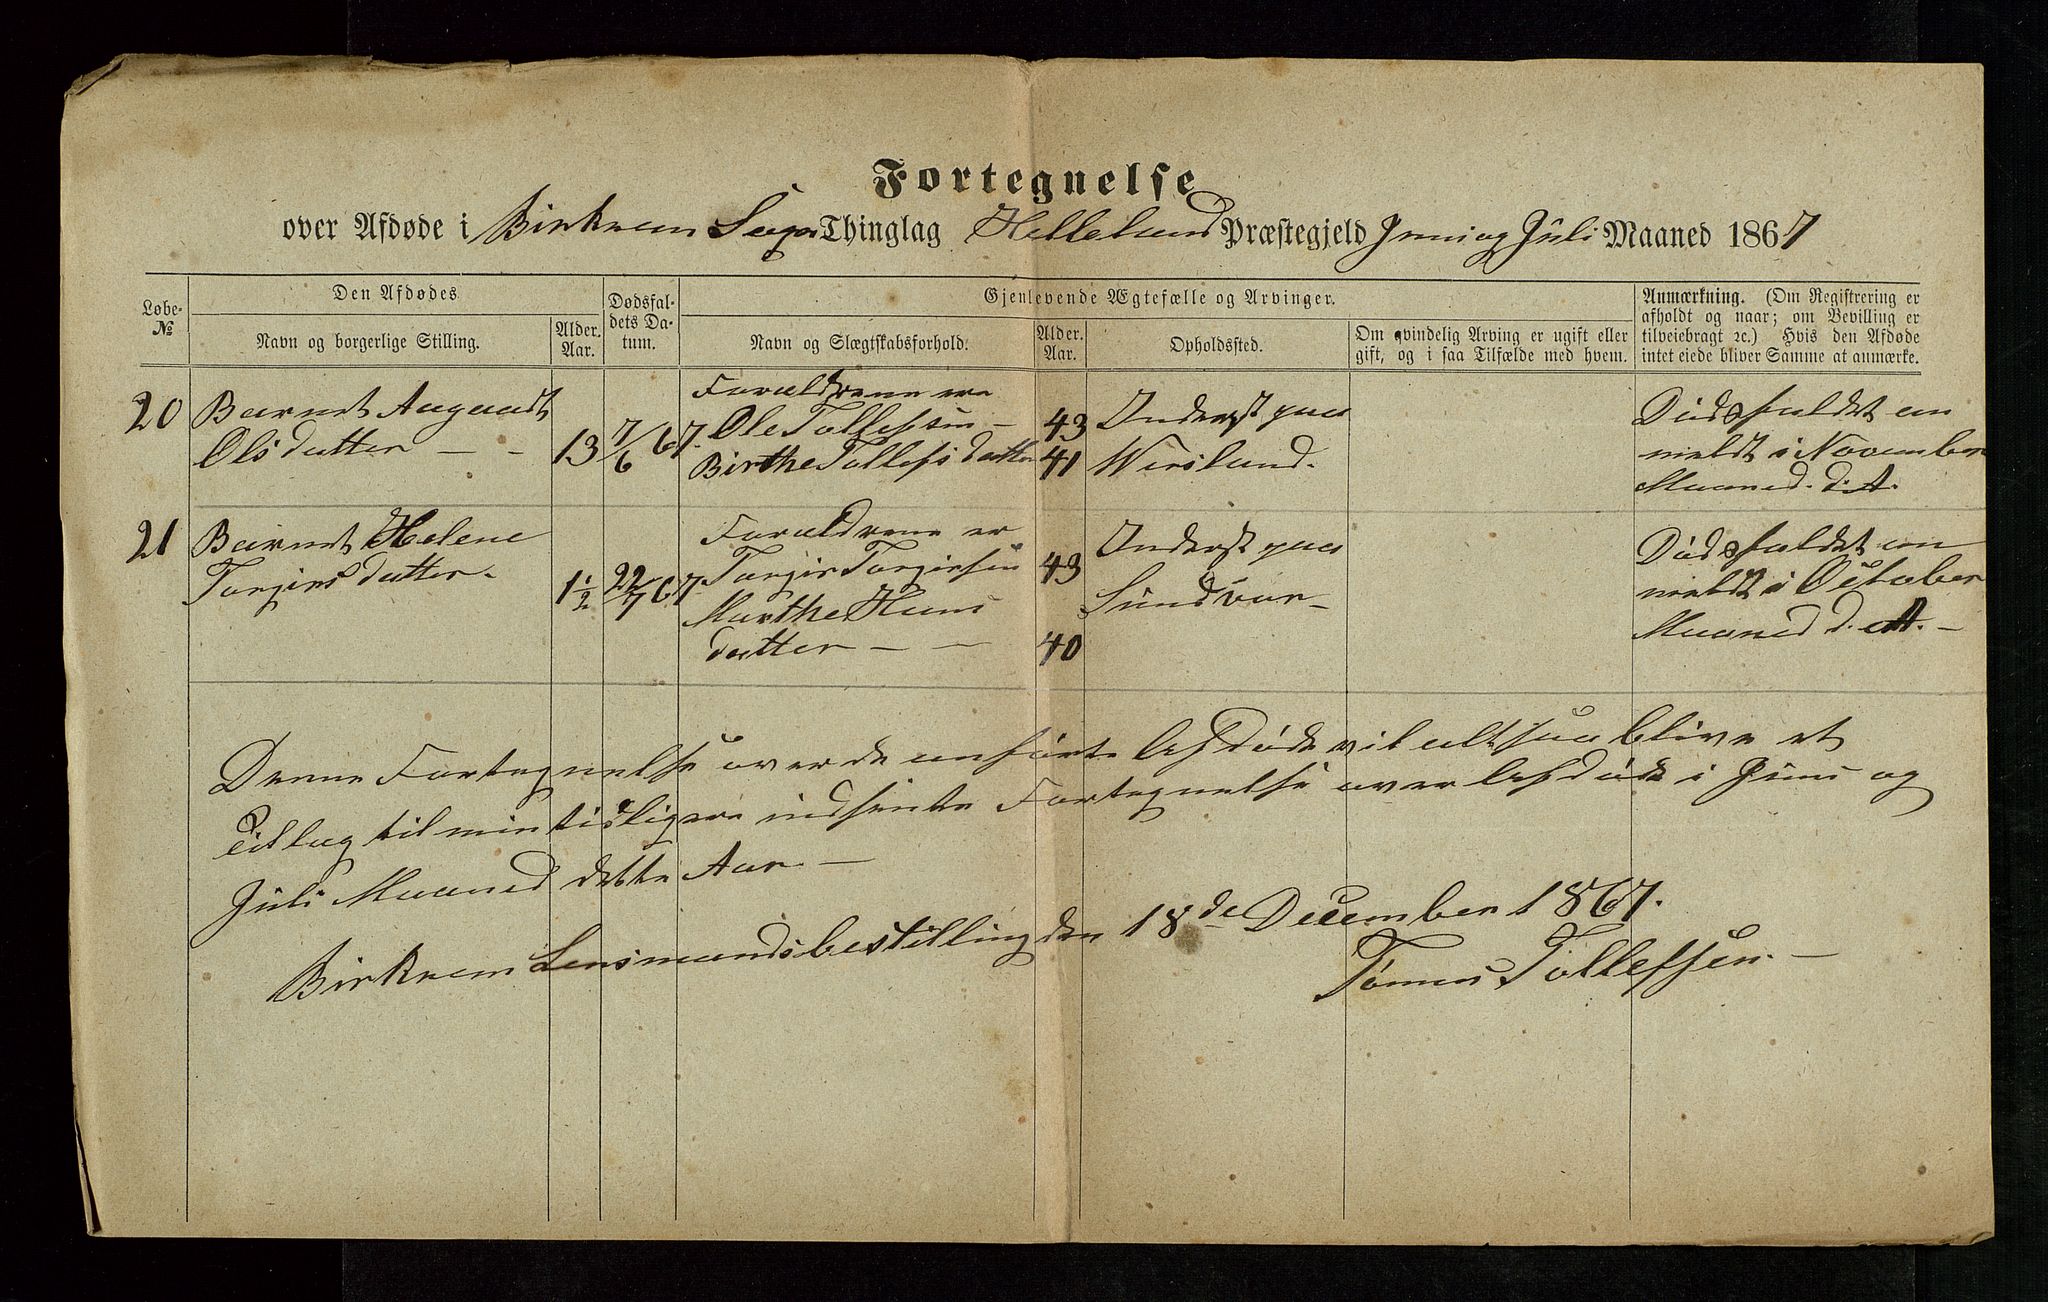 Fortegnelse
over Afdøde i Birkrem Sogns Thinglag Helleland Præstegjeld Juni og Juli Maaned 1867
Løbe-No
Den Afdødes
Navn og borgerlige Stilling.
Alder. Aar.
Dødsfaldets Datum.
Gjenlevende Ægtefælle og Arvinger.
Navn og Slægtskabsforhold.
Alder. Aar.
Opholdssted.
Om qvindelig Arving er ugift eller
gift, og i saa Tilfælde med hvem.
Anmærkning. (Om Registrering er
afholdt og naar; om Bevilling er
tilveiebragt 2c.) Hvis den Afdøde
intet eiede bliver Samme at anmærke.
20 Barnet Aagaadt
Olsdatter - -
13
7/6 67.
Forældrene ere
Ole Tollefsen -
Birthe Tollefsdatter
43
41
Inderst paa
Wersland.
Dødsfaldet an
meldt i November
Maaned. d. A.
21 Barnet Helene
Torgersdatter.
1 1/2
22/7 67
Forældrene er
Torger Torgersen
Marthe Hans
datter - -
43
40
Inderst paa
Sundvor -
Dødsfaldet an
meldt i October
Maaned d. A. -
Denne Fortegnelse over de anførte Afdøde vil altsaa blive et
Tillæg til min tidligere indsendte Fortegnelse over Afdøde i Juni og
Juli Maaned dette Aar. -
Birkrem Lensmandsbestilling den 18de December 1867.
Tønnes Tollefsen. -